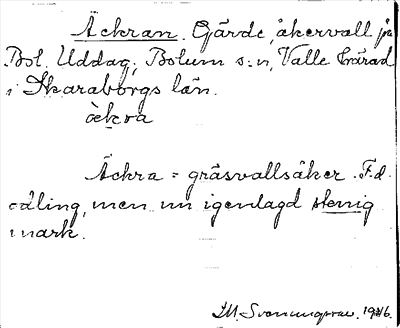 Äckran. Gärde, åkervall på
Bol. Uddag, Bolum s:n, Valle härad
i Skaraborgs län.
äckra
Äckra = gräsvallsåker. F.d.
odling, men nu igenlagd stenig
mark.